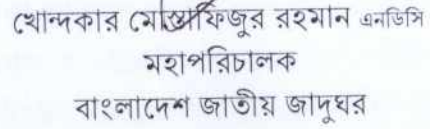 খোন্দকার মোস্তাফিজুর রহমান এনডিসি
মহাপরিচালক
বাংলাদেশ জাতীয় জাদুঘর